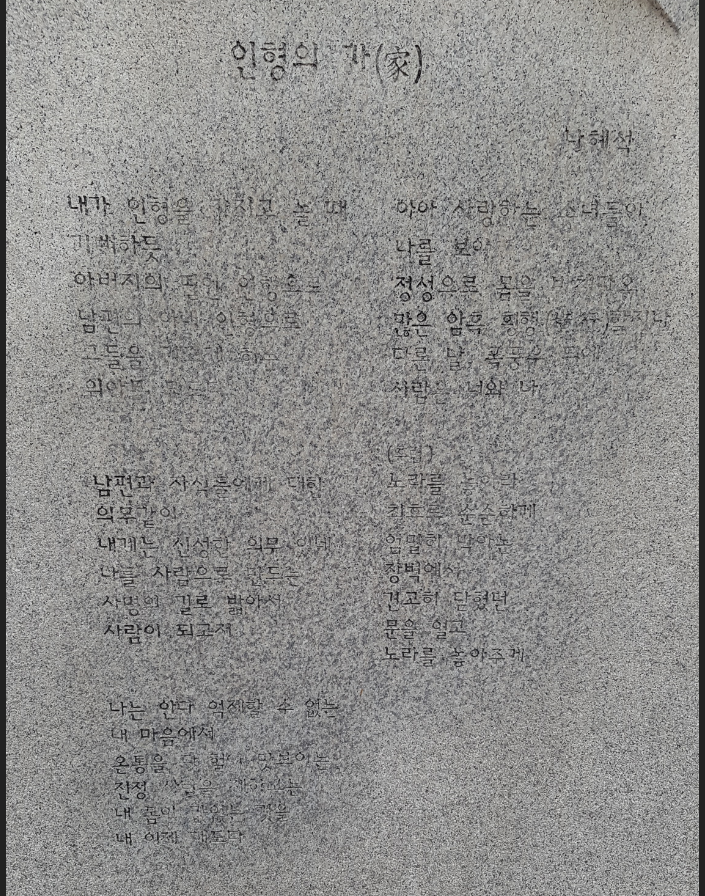 인형의 가(家)
나혜석
내가 인형을 가지고 놀 때
기뻐하듯
아버지의 딸인 인형으로
남편의 아내 인형으로
그들을 하는
남편과 자식들에게 대한
의무같이
내게는 신성한 의무 있네
나를 사람으로 만드는
사명의 길로 밟아서
사람이 되고저
나는 안다 억제할 수 없는
내 마음에서
온통을 다 헐어 맛보이는
진정 사람을 제하고는
내 몸이 값없는 것을
내 이제 깨도다
아아 사랑하는 소녀들아
나를 보아
정성으로 몸을 바쳐다오
많은 암흑 횡행 할지나
다른 날, 폭풍우 뒤에
사람은 너와 나
노라를 놓아라
최후로 순순하게
엄밀히 막아논
장벽에서
견고히 닫혔던
문을 열고
노라를 놓아주게